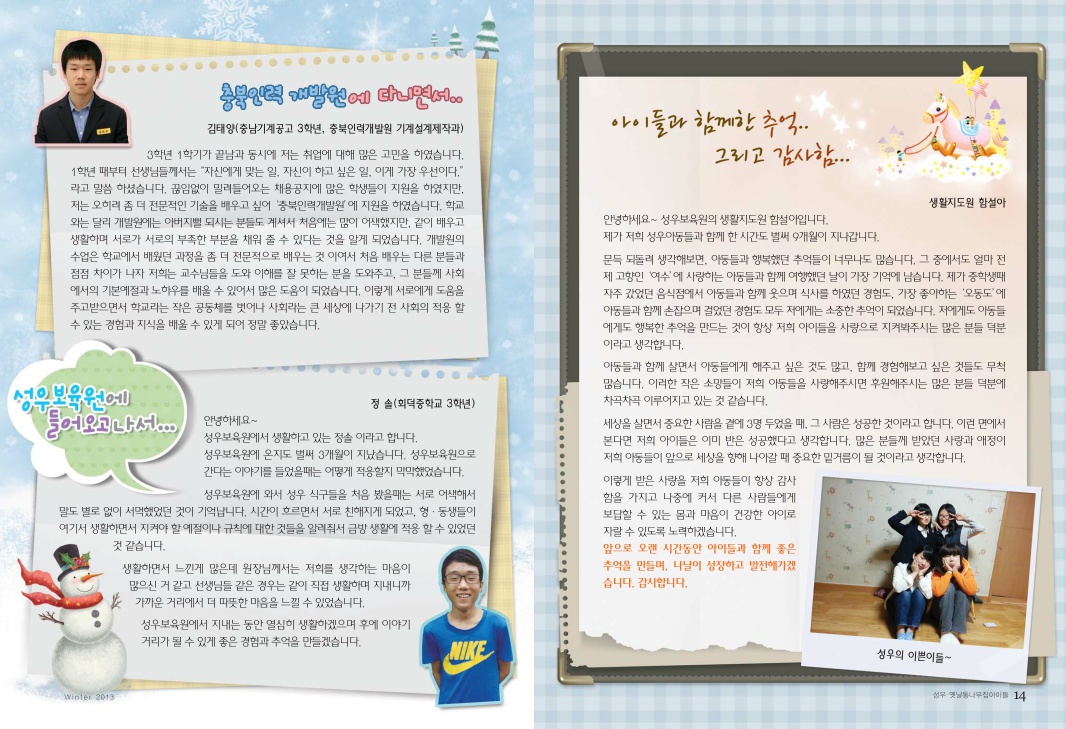 충북인력 개발원에 다니면서..
김태양(충남기계공고 3학년, 충북인력개발원 기계설계제작과)
3학년 1학기가 끝남과 동시에 저는 취업에 대해 많은 고민을 하였습니다.
1학년 때부터 선생님들께서는 “자신에게 맞는 일, 자신이 하고 싶은 일, 이게 가장 우선이다.”
라고 말씀 하셨습니다. 끊임없이 밀려들어오는 채용공지에 많은 학생들이 지원을 하였지만,
저는 오히려 좀 더 전문적인 기술을 배우고 싶어 ‘충북인력개발원’에 지원을 하였습니다. 학교
와는 달리 개발원에는 아버지뻘 되시는 분들도 계셔서 처음에는 많이 어색했지만, 같이 배우고
생활하며 서로가 서로의 부족한 부분을 채워 줄 수 있다는 것을 알게 되었습니다. 개발원의
수업은 학교에서 배웠던 과정을 좀 더 전문적으로 배우는 것 이여서 처음 배우는 다른 분들과
점점 차이가 나자 저희는 교수님들을 도와 이해를 잘 못하는 분을 도와주고, 그 분들께 사회
에서의 기본예절과 노하우를 배울 수 있어서 많은 도움이 되었습니다. 이렇게 서로에게 도움을
주고받으면서 학교라는 작은 공동체를 벗어나 사회라는 큰 세상에 나가기 전 사회의 적응 할
수 있는 경험과 지식을 배울 수 있게 되어 정말 좋았습니다.
성우보육원에
들어오고나서...
정 솔(회덕중학교 3학년)
안녕하세요~
성우보육원에서 생활하고 있는 정솔 이라고 합니다.
성우보육원에 온지도 벌써 3개월이 지났습니다. 성우보육원으로
간다는 이야기를 들었을때는 어떻게 적응할지 막막했었습니다.
성우보육원에 와서 성우 식구들을 처음 봤을때는 서로 어색해서
말도 별로 없이 서먹했었던 것이 기억납니다. 시간이 흐르면서 서로 친해지게 되었고, 형·동생들이
여기서 생활하면서 지켜야 할 예절이나 규칙에 대한 것들을 알려줘서 금방 생활에 적응 할 수 있었던
것 같습니다.
생활하면서 느낀게 많은데 원장님께서는 저희를 생각하는 마음이
많으신 거 같고 선생님들 같은 경우는 같이 직접 생활하며 지내니까
가까운 거리에서 더 따뜻한 마음을 느낄 수 있었습니다.
성우보육원에서 지내는 동안 열심히 생활하겠으며 후에 이야기
거리가 될 수 있게 좋은 경험과 추억을 만들겠습니다.
NIKE
Winter 2013
아이들과 함께한 추억..
그리고 감사함...
생활지도원 함설아
안녕하세요~ 성우보육원의 생활지도원 함설아입니다.
제가 저희 성우아동들과 함께 한 시간도 벌써 9개월이 지나갑니다.
문득 되돌려 생각해보면, 아동들과 행복했던 추억들이 너무나도 많습니다. 그 중에서도 얼마 전
제 고향인 ‘여수’에 사랑하는 아동들과 함께 여행했던 날이 가장 기억에 남습니다. 제가 중학생때
자주 갔었던 음식점에서 아동들과 함께 웃으며 식사를 하였던 경험도, 가장 좋아하는 ‘오동도’에
아동들과 함께 손잡으며 걸었던 경험도 모두 저에게는 소중한 추억이 되었습니다. 저에게도 아동들
에게도 행복한 추억을 만드는 것이 항상 저희 아이들을 사랑으로 지켜봐주시는 많은 분들 덕분
이라고 생각합니다.
아동들과 함께 살면서 아동들에게 해주고 싶은 것도 많고, 함께 경험해보고 싶은 것들도 무척
많습니다. 이러한 작은 소망들이 저희 아동들을 사랑해주시면 후원해주시는 많은 분들 덕분에
차곡차곡 이루어지고 있는 것 같습니다.
세상을 살면서 중요한 사람을 곁에 3명 두었을 때, 그 사람은 성공한 것이라고 합니다. 이런 면에서
본다면 저희 아이들은 이미 반은 성공했다고 생각합니다. 많은 분들께 받았던 사랑과 애정이
저희 아동들이 앞으로 세상을 향해 나아갈 때 중요한 밑거름이 될 것이라고 생각합니다.
이렇게 받은 사랑을 저희 아동들이 항상 감사
함을 가지고 나중에 커서 다른 사람들에게
보답할 수 있는 몸과 마음이 건강한 아이로
자랄 수 있도록 노력하겠습니다.
앞으로 오랜 시간동안 아이들과 함께 좋은
추억을 만들며, 나날이 성장하고 발전해가겠
습니다. 감사합니다.
성우의 이쁜이들~
성우 옛날통나무집아이들 14